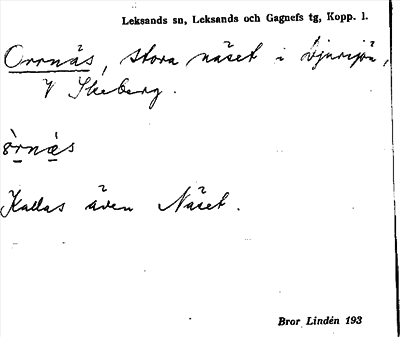 Leksands sn, Leksands och Gagnefs tg, Kopp. l.
Orrnäs, stora näset i Opljursjön,
V Skeberg.
òrnǽs
Kallas även Näset.
Bror Lindén 193